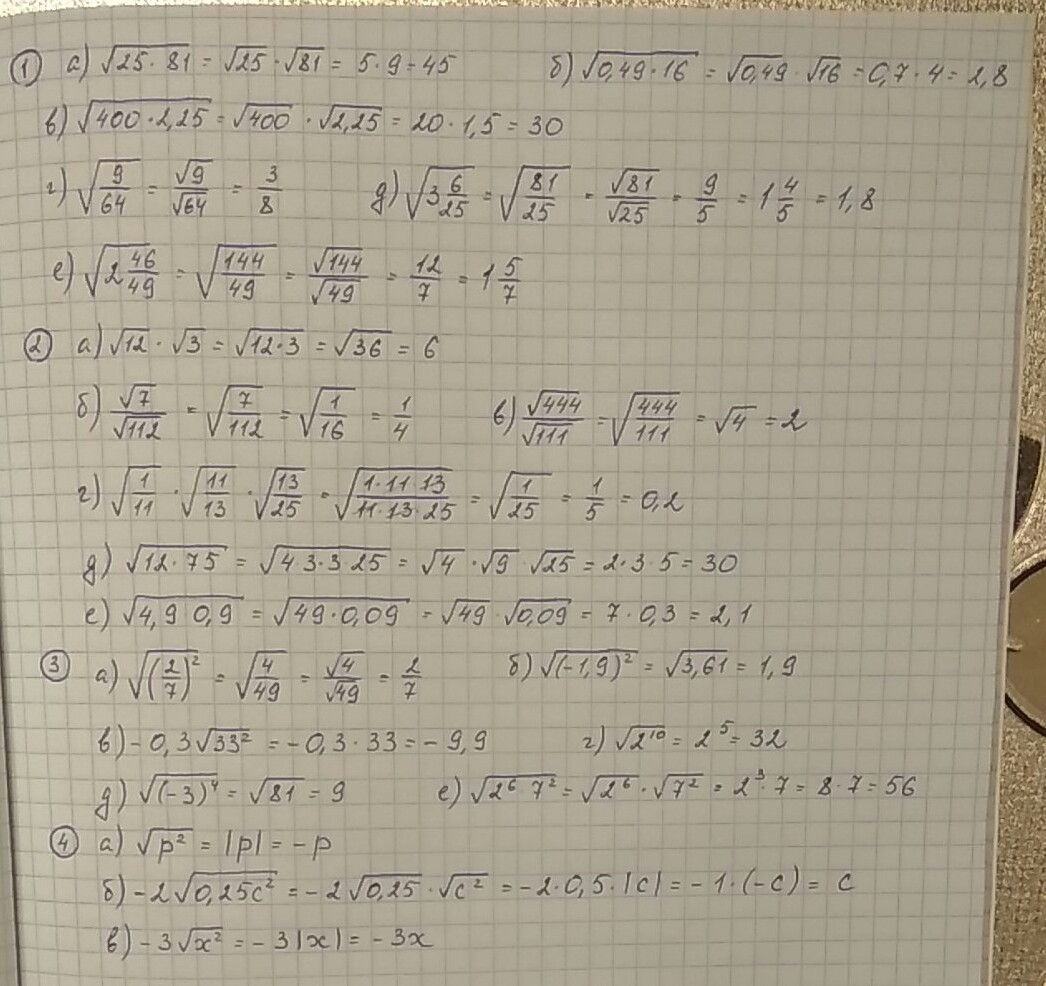 ① а) √(25·81) = √25·√81 = 5·9 = 45 б) √(0,49·16) = √0,49·√16 = 0,7·4 = 2,8
в) √(400·2,25) = √400·√2,25 = 20·1,5 = 30
г) √(9/64) = √9/√64 = 3/8 д) √(3 6/25) = √(81/25) = √81/√25 = 9/5 = 1 4/5 = 1,8
е) √(2 46/49) = √(144/49) = √144/√49 = 12/7 = 1 5/7
② а) √12·√3 = √(12·3) = √36 = 6
б) √7/√112 = √(7/112) = √(1/16) = 1/4 в) √444/√111 = √(444/111) = √4 = 2
г) √(1/11)·√(11/13)·√(13/25) = √((1·11·13)/(11·13·25)) = √(1/25) = 1/5 = 0,2
д) √(12·75) = √(4·3·3·25) = √4·√9·√25 = 2·3·5 = 30
е) √(4,9·0,9) = √(49·0,09) = √49·√0,09 = 7·0,3 = 2,1
③ а) √((2/7)²) = √(4/49) = √4/√49 = 2/7 б) √((-1,9)²) = √3,61 = 1,9
в) -0,3√(33²) = -0,3·33 = -9,9 г) √(2¹⁰) = 2⁵ = 32
д) √((-3)⁴) = √81 = 9 е) √(2⁶·7²) = √(2⁶)·√(7²) = 2³·7 = 8·7 = 56
④ а) √(p²) = |p| = -p
б) -2√(0,25c²) = -2√0,25·√(c²) = -2·0,5·|c| = -1·(-c) = c
в) -3√(x²) = -3|x| = -3x